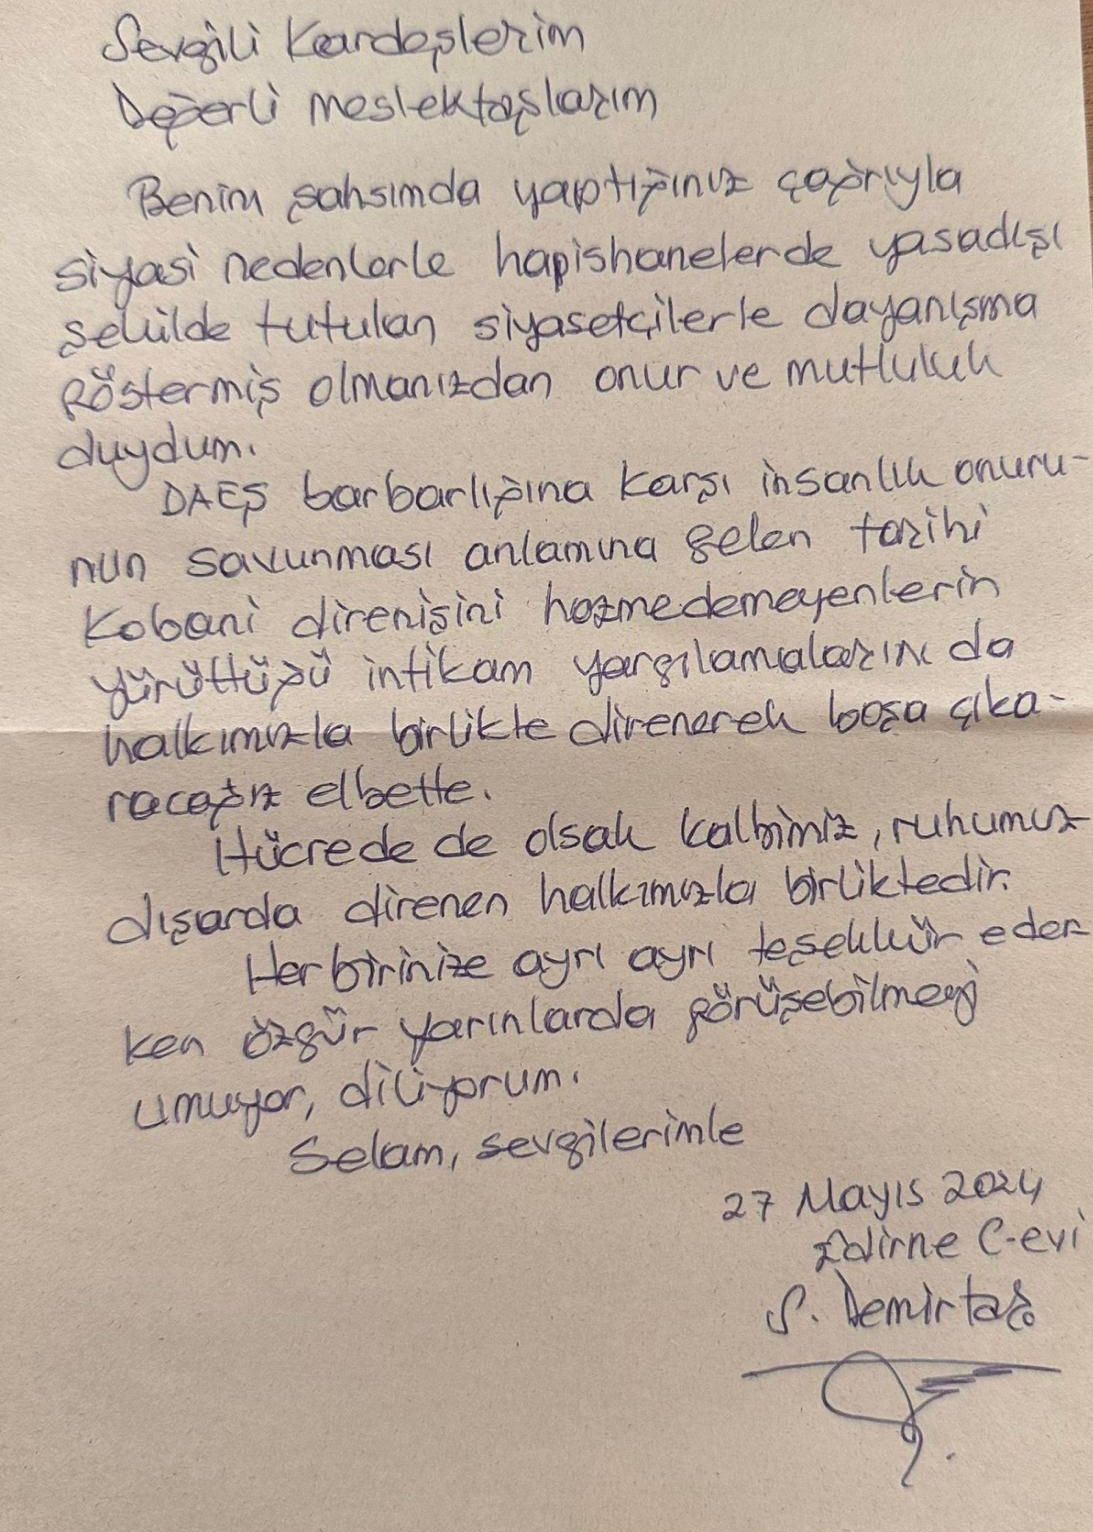 Sevgili Kardeşlerim
Değerli meslektaşlarım
Benim şahsımda yaptığınız çağrıyla
siyasi nedenlerle hapishanelerde yasadışı
şekilde tutulan siyasetçilerle dayanışma
göstermiş olmanızdan onur ve mutluluk
duydum.
DAEŞ barbarlığına karşı insanlık onuru-
nun savunması anlamına gelen tarihi
Kobani direnişini hazmedemeyenlerin
yürüttüğü intikam yargılamalarını da
halkımızla birlikte direnerek boşa çıka-
racağız elbette.
Hücrede de olsak kalbimiz, ruhumuz
dışarda direnen halkımızla birliktedir.
Herbirinize ayrı ayrı teşekkür eder-
ken özgür yarınlarda görüşebilmeyi
umuyor, diliyorum.
Selam, sevgilerimle
27 Mayıs 2024
Edirne C-evi
S. Demirtaş